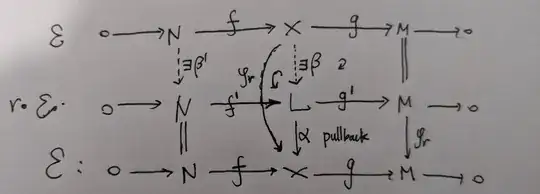 ℰ 0 → N f → X g → M → 0
∃β' φr ∃β 2
r•ℰ. 0 → N f' → L g' → M → 0
α pullback φr
ℰ: 0 → N f → X g → M → 0